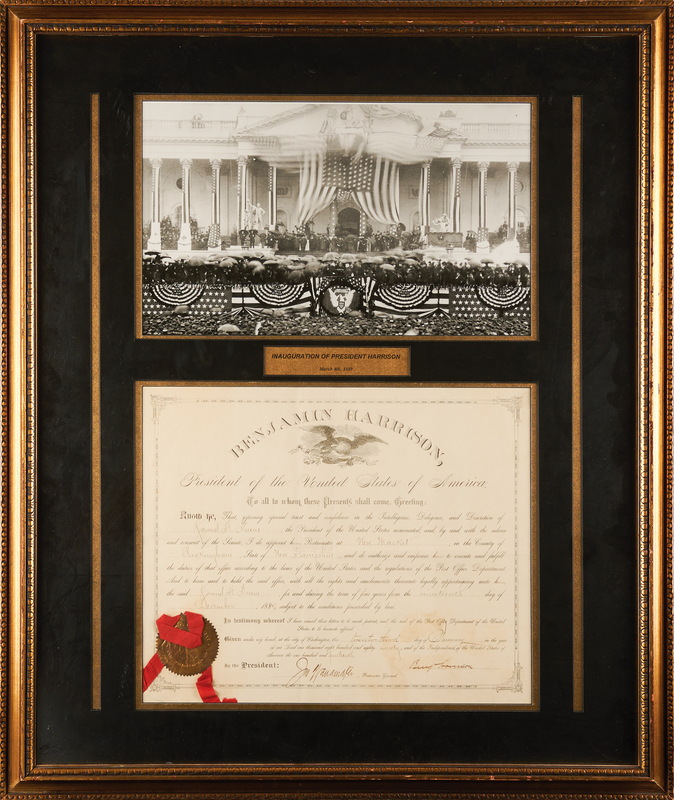 INAUGURATION OF PRESIDENT HARRISON
March 4th, 1889
BENJAMIN HARRISON,
President of the United States of America
To all to whom these Presents shall come, Greeting:
Know ye, That, reposing special trust and confidence in the Intelligence, Diligence, and Discretion of
the President of the United States nominated, and by and with the advice
and consent of the Senate, I do appoint h Postmaster at New Market, in the County of
Rockingham, State of New Hampshire, and do authorize and empower h to execute and fulfill
the duties of that office according to the laws of the United States and the regulations of the Post Office Department
And to have and to hold the said office, with all the rights and emoluments thereunto legally appertaining unto h
the said for and during the term of four years from the nineteenth day of
December 1889, subject to the conditions prescribed by law.
In testimony whereof I have caused these letters to be made patent, and the seal of the Post Office Department of the United
States to be hereunto affixed.
Given under my hand at the city of Washington, the day of January in the year
of our Lord one thousand eight hundred and ninety, and of the Independence of the United States of
America the one hundred and
By the President:
Jno Wanamaker Postmaster General
Benj Harrison